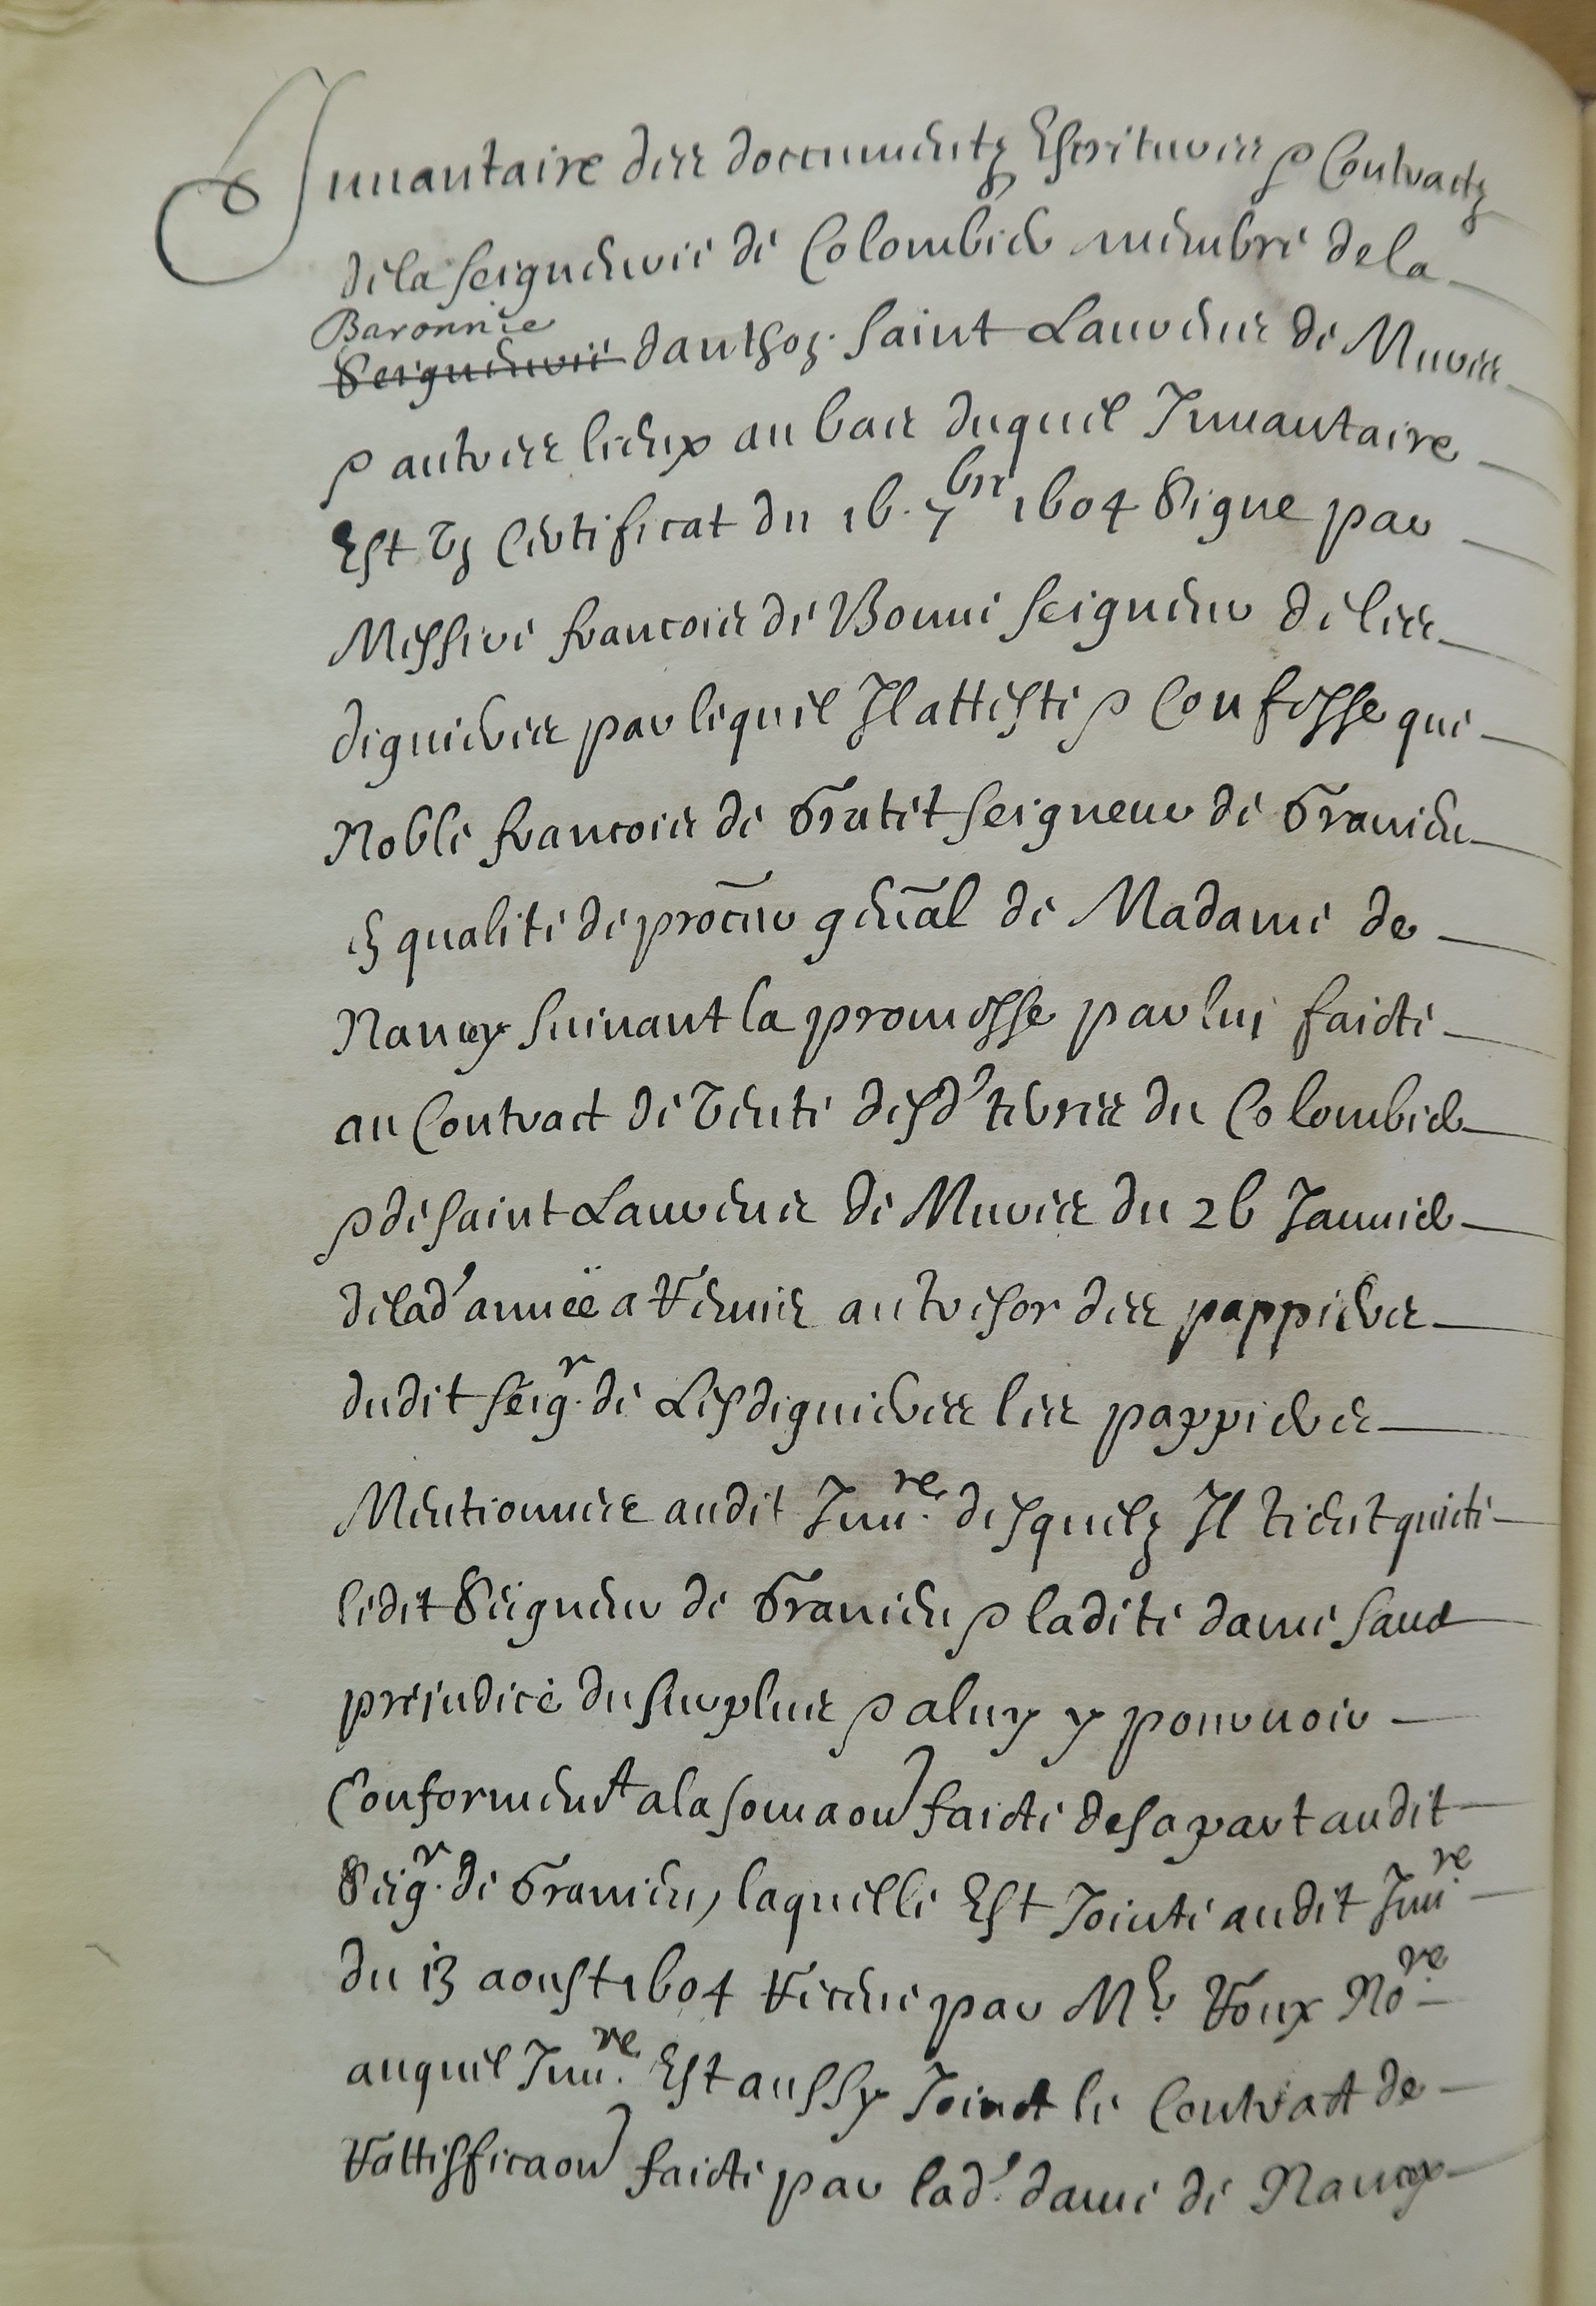 Inuantaire des documentz Escritures & Contractz
de la seigneurie de Colombier membre de la
Baronnie
Seigneurie danthoz. Saint Laurens de Mures
& autres lieux au bas duquel Inuantaire
Est vz Certificat du 16. 7bre 1604 Signe par
Messire francois de Bonne seigneur de les
diguieres par lequel Il atteste & Confesse que
Noble francois de Gratet seigneur de Granieu
ez qualite de procur general de Madame de
Nancy suiuant la promesse par lui faicte
au Contract de Vente desd' terres du Colombier
& de saint Laurens de Mures du 26 Januier
de lad' annee a Remis au tresor des pappiers
dudit seigr. de Lesdiguieres les pappiers
Mentionnes audit Inure. desquelz Il tient quicte
ledit Seigneur de Granieu & ladite dame sans
preiudice du surplus & a luy y pouruoir
Conformemt a la somaon faicte de sa part audit
Seigr. de Granieu, laquelle Est Jointe audit Inure
du 13 aoust 1604 Receue par Me. Roux Nore
auquel Inure. Est aussy Joinct le Contract de
Rattifficaon faicte par lad'. dame de Nancy